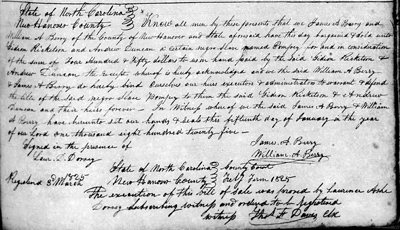 State of North Carolina }
New Hanover County } Know all men by these presents that we James A Berry and
William A. Berry of the County of New Hanover and State aforesaid have this day bargained & sold unto
Gideon Ricketson and Andrew Duncan a certain negro Slave named Pompey for and in consideration
of the sum of Four Hundred & Fifty dollars to us in hand paid by the said Gideon Ricketson &
Andrew Duncan the receipt whereof is hereby acknowledged and we the said William A Berry
& James A Berry do hereby bind Ourselves our heirs executors & administrators to warrant & defend
the title of the said negro Slave Pompey to them the said Gideon Ricketson & Andrew
Duncan and their heirs forever — In Witness whereof we the said James A Berry & William
A Berry have hereunto set our hands & seals this fifteenth day of January in the year
of our Lord one thousand eight hundred twenty five —
Signed in the presence of James. A. Berry
Law. A. Dorsey William A Berry
State of North Carolina } County Court
New Hanover County } Feby Term 1825
Registered 8 March 1825
The execution of this bill of sale was proved by Lawrence Ashe
Dorsey subscribing witness and ordered to be registered
Witness Thos. F Davis Clk